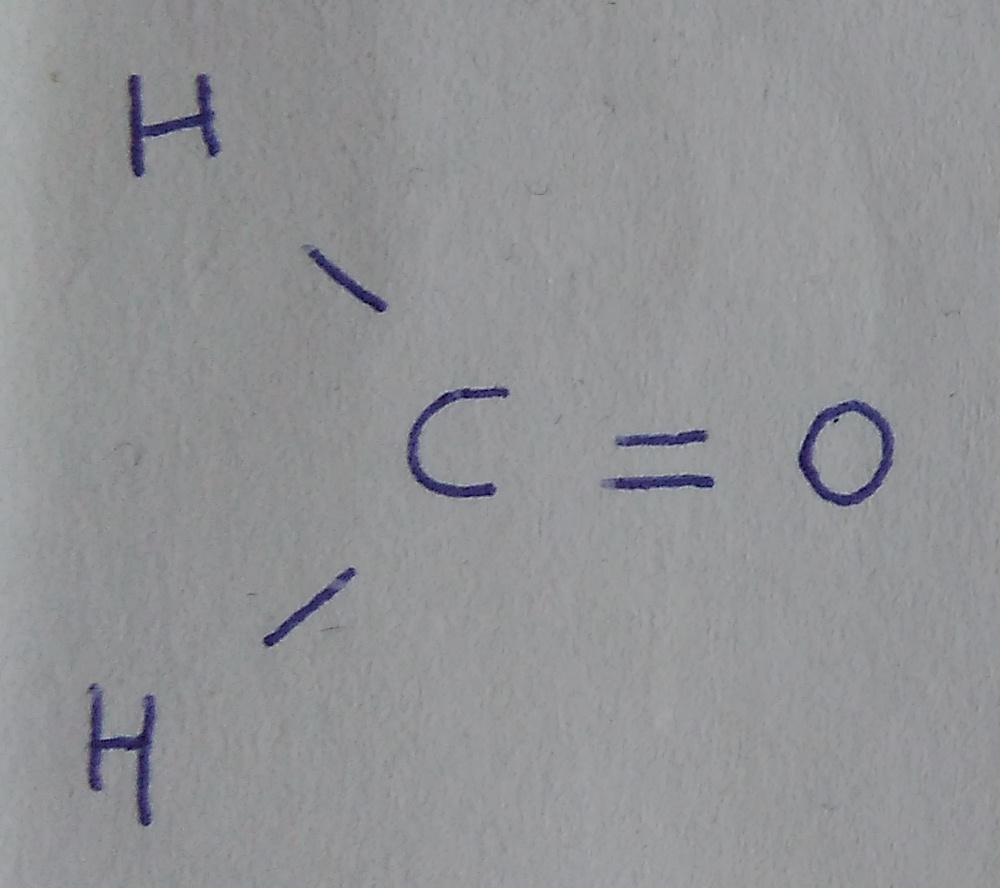 H
C = O
H